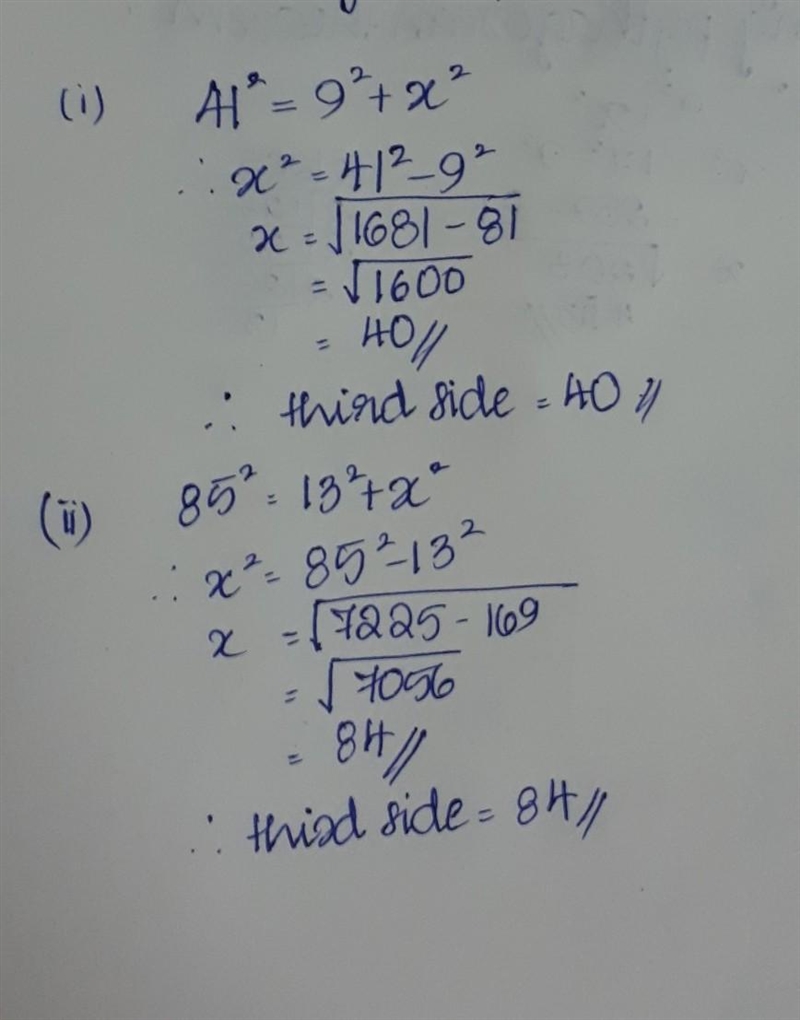 (i) 41² = 9² + x²
∴ x² = 41² – 9²
x = √1681 – 81
= √1600
= 40//
∴ third side = 40//
(ii) 85² = 13² + x²
∴ x² = 85² – 13²
x = √7225 - 169
= √7056
= 84//
∴ third side = 84//